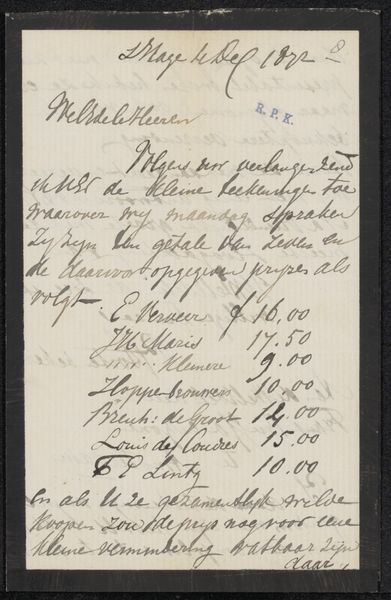 s'Hage 4 Dec 1872
WelEdele Heeren
R.P.K.
Volgens uw verlangen zend
ik UEd de kleine teekeningen toe
waarover wij maandag spraken
Zij zijn ten getale van zeven en
de daarvoor opgegeven prijzen als
volgt
E Verveer f 16.00
JH Maris 17.50
kleinere 9.00
Hoppenbrouwers 10.00
Breuh: de Groot 14.00
Louis de Coudres 15.00
E Lintz 10.00
En als U ze gezamentlijk wilde
koopen zou de prijs nog voor eene
kleine vermindering vatbaar zijn
daar